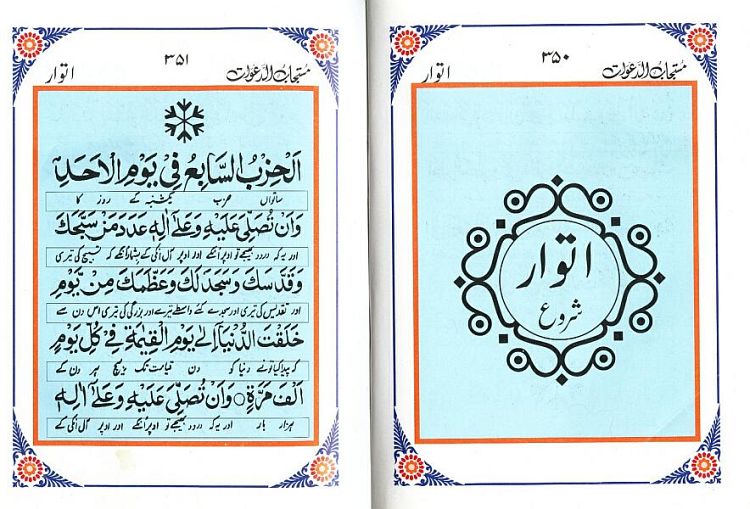 مستجاب الدعوات ۳۵۰ اتوار
اتوار
شروع
مستجاب الدعوات ۳۵۱ اتوار
اَلْحِزْبُ السَّابِعُ فِيْ يَوْمِ الْاَحَدِ
ساتواں حزب یکشنبہ کے روز کا
وَاَنْ تُصَلِّيَ عَلَيْهِ وَعَلٰٓى اٰلِهٖ عَدَدَ مَنْ سَبَّحَكَ
اور یہ کہ درود بھیجے تو اوپر انکے اور اوپر آل انکی کے بشمار انکے کہ تسبیح کی تیری
وَقَدَّسَكَ وَسَجَدَ لَكَ وَعَظَّمَكَ مِنْ يَّوْمِ
اور تقدیس کی تیری اور سجدے کئے واسطے تیرے اور بزرگی کی تیری اس دن سے
خَلَقْتَ الدُّنْيَا اِلٰى يَوْمِ الْقِيٰمَةِ فِيْ كُلِّ يَوْمٍ
کہ پیدا کیا تو نے دنیا کو دن قیامت تک بیچ ہر دن کے
اَلْفَ مَرَّةٍ ○ وَاَنْ تُصَلِّيَ عَلَيْهِ وَعَلٰٓى اٰلِهٖ
ہزار بار اور یہ کہ درود بھیجے تو اوپر انکے اور اوپر آل انکی کے